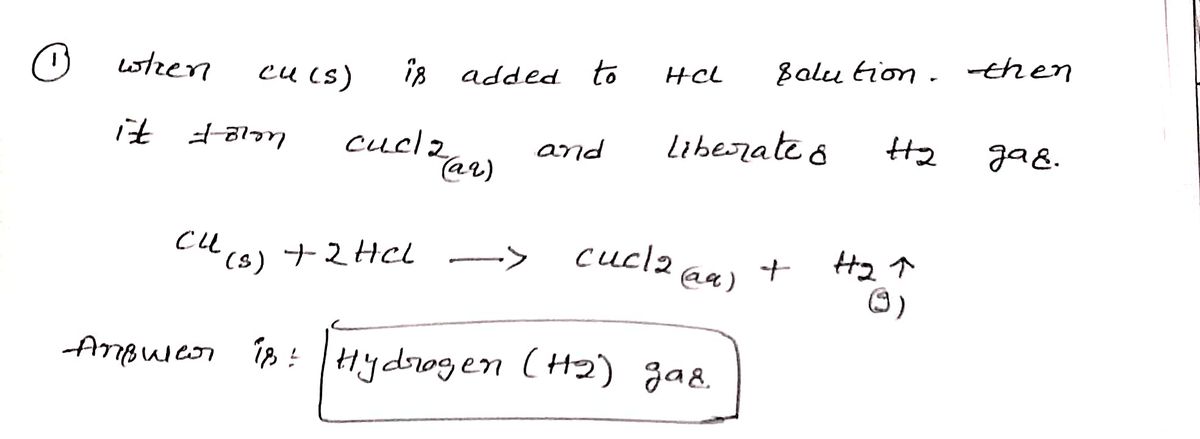 ① when cu (s) is added to HCl solution. then
it form cucl2(aq) and liberates H2 gas.
cu(s) + 2HCl —> cucl2(aq) + H2↑(g)
Answer is: Hydrogen (H2) gas.